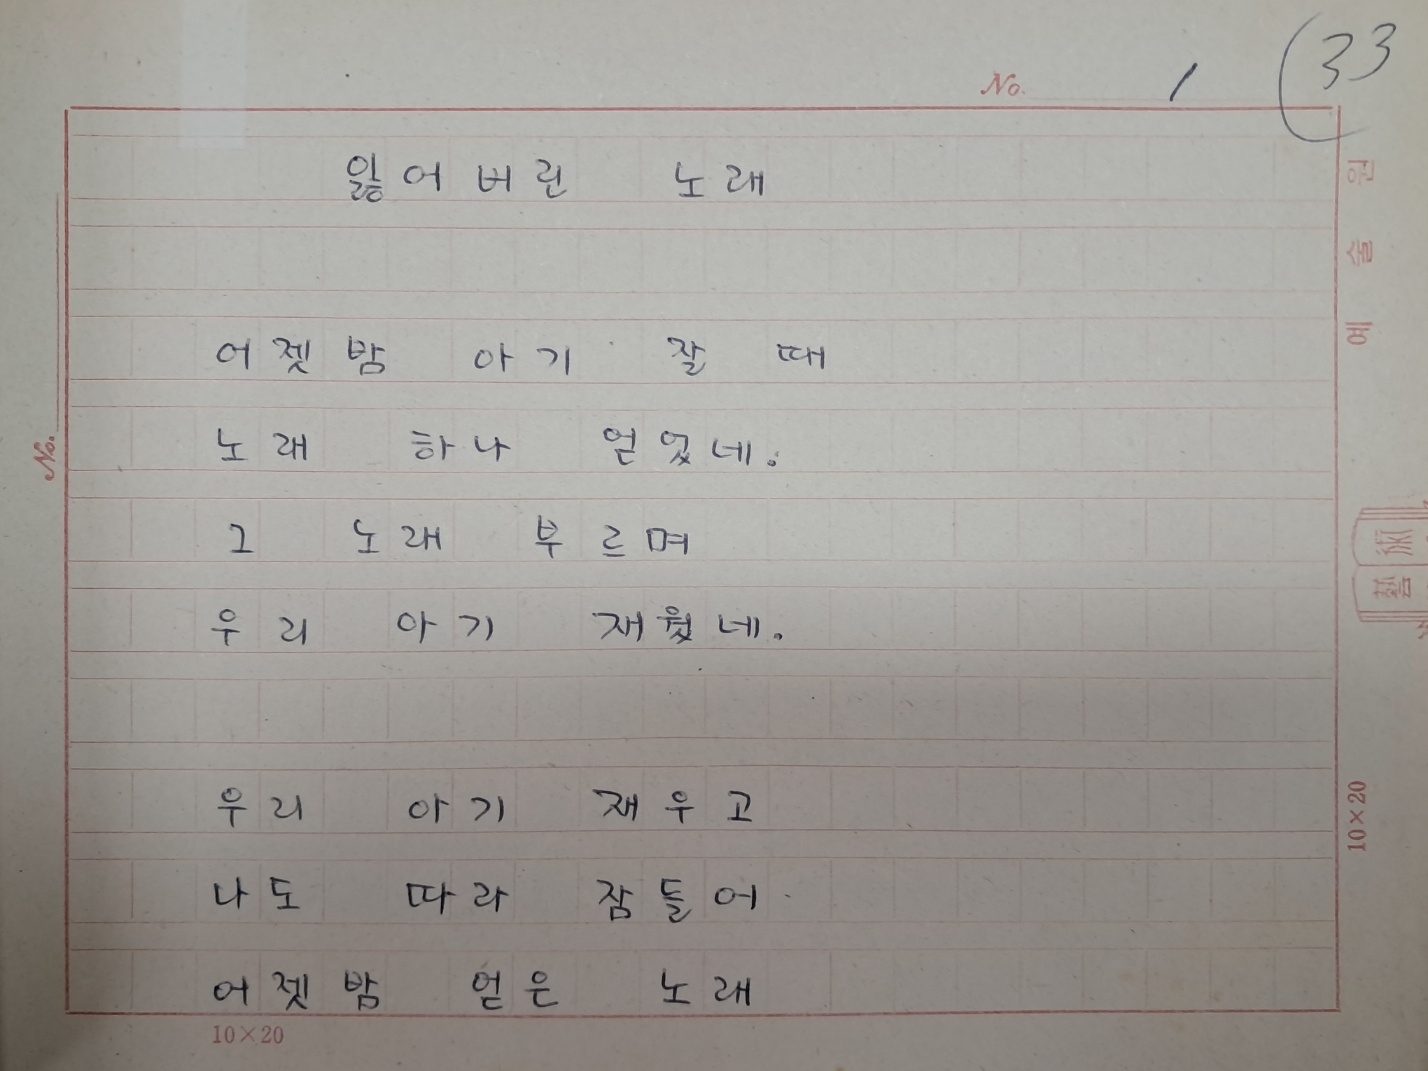 No. 1 33
잃어버린 노래
어젯밤 아기 잘 때
노래 하나 얻었네.
그 노래 부르며
우리 아기 재웠네.
우리 아기 재우고
나도 따라 잠들어
어젯밤 얻은 노래
10×20
No.
예술원
藝術
10×20